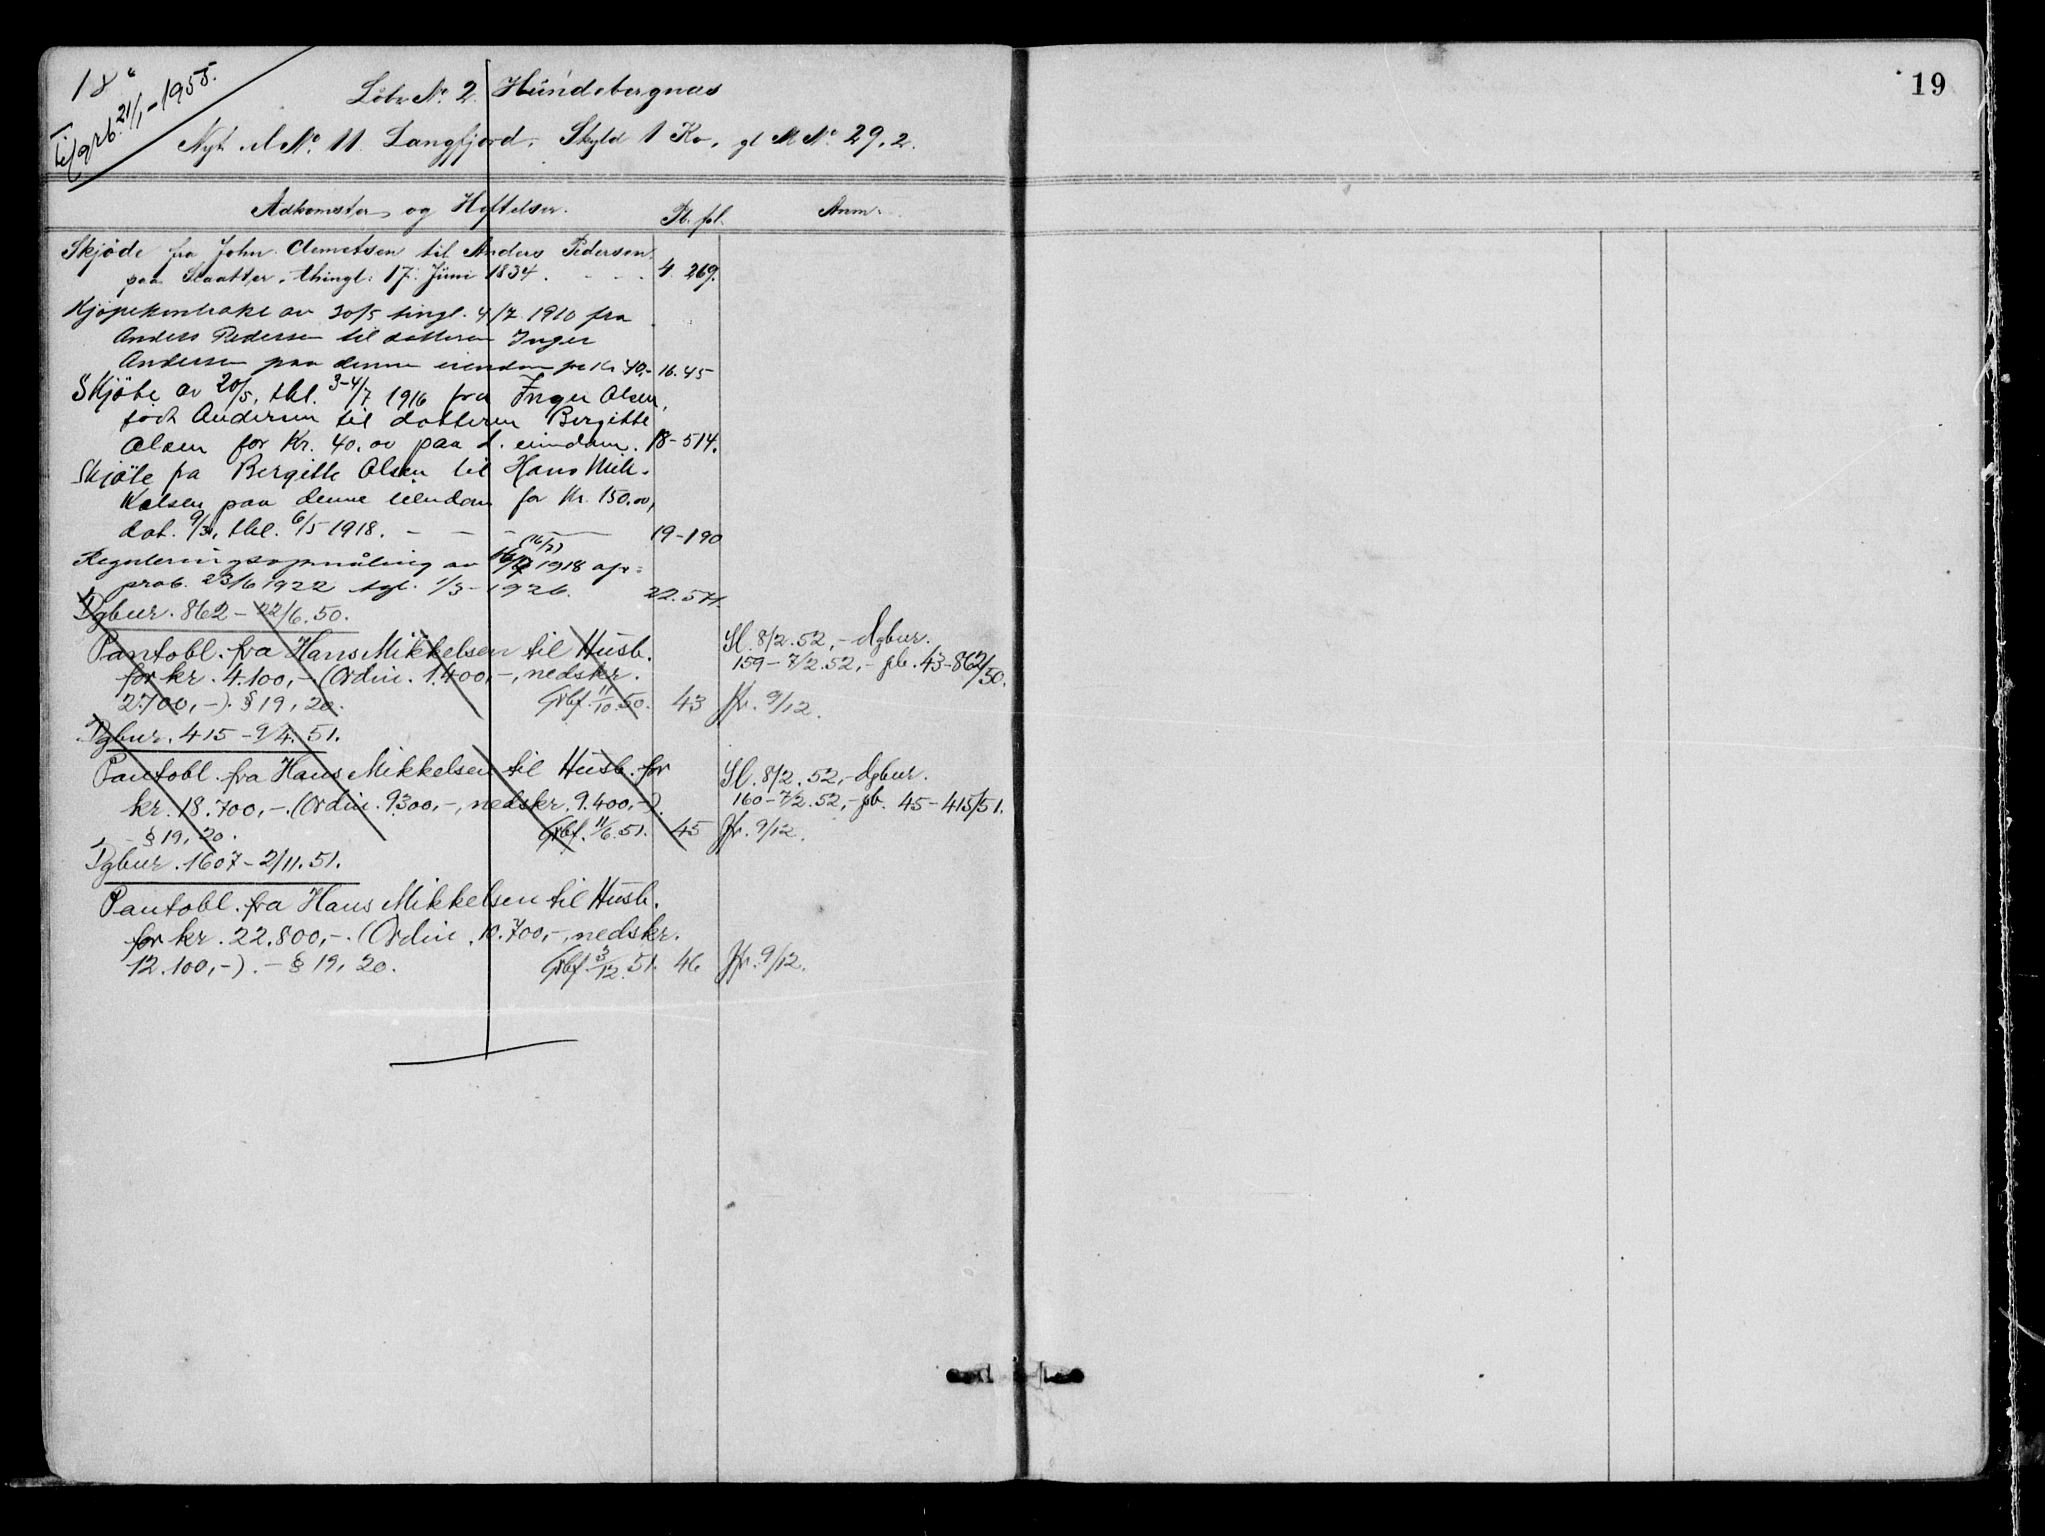 18
19
til grb. 21/1-1955.
Löbe No. 2. Hundebergnæs
Nyt M No. 11 Langfjord. Skyld 1 Kv. gl M No. 29,2.
Adkomster og Heftelser. Pb. fol. Anm.
Skjøde fra John Clemetsen til Anders Pedersen
paa Slaatter, thingl: 17. Juni 1834. - - - 4. 269.
Kjøpekontrakt av 30/5 tingl. 4/7 1910 fra
Anders Pedersen til datteren Inger
Andersen paa denne eiendom for Kr 40,- 16. 45
Skjöte av 20/5, tbl. 3-4/7 1916 fra Inger Olsen,
født Andersen til datteren Bergitte
Olsen for Kr. 40.00 paa d. eiendom. 18-514.
Skjöte fra Bergitte Olsen til Hans Mik-
kelsen paa denne eiendom for Kr. 150.00,
dat. 9/3, tbl. 6/5 1918. - - - 19-190
(16/7)
Reguleringsopmåling av 1918 ap-
prob. 23/6 1922 tgl. 1/3-1926. 22.571.
Dgbnr. 862 - 22/6.50.
Pantobl. fra Hans Mikkelsen til Husb.
for kr. 4.100,-. (Ordin. 1.400,-, nedskr.
2.700,-). § 19, 20. Grbf. 11/10.50. 43
Sl. 8/2.52,- dgbnr.
159 - 7/2.52,- pb. 43-862/50.
Jfr. 9/12.
Dgbnr. 415 - 9/4. 51.
Pantobl. fra Hans Mikkelsen til Husb. for
kr. 18.700,-. (Ordin. 9.300,-, nedskr. 9.400,-).
§ 19, 20. Grbf. 11/6.51. 45
Sl. 8/2.52,- dgbnr.
160 - 7/2.52,- pb. 45-415/51.
Jfr. 9/12.
Dgbnr. 1607 - 2/11.51.
Pantobl. fra Hans Mikkelsen til Husb.
for kr. 22.800,-. (Ordin. 10.700,-, nedskr.
12.100,-). - § 19, 20. Grbf. 3/12.51. 46 Jfr. 9/12.